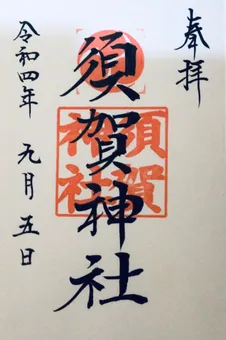 奉拝
須賀神社
須賀
神社
令和四年 九月五日